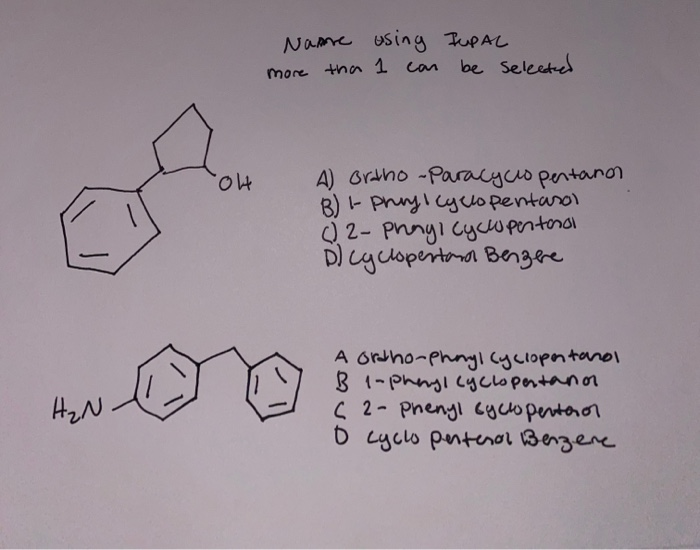 Name using IUPAC
more than 1 can be selected
OH
A) ortho-Paracyclopentanol
B) 1-phenylcyclopentanol
C) 2-phenylcyclopentanol
D) cyclopentanol Benzene
H₂N
A ortho-phenylcyclopentanol
B 1-phenylcyclopentanol
C 2-phenylcyclopentanol
D cyclo pentenol Benzene